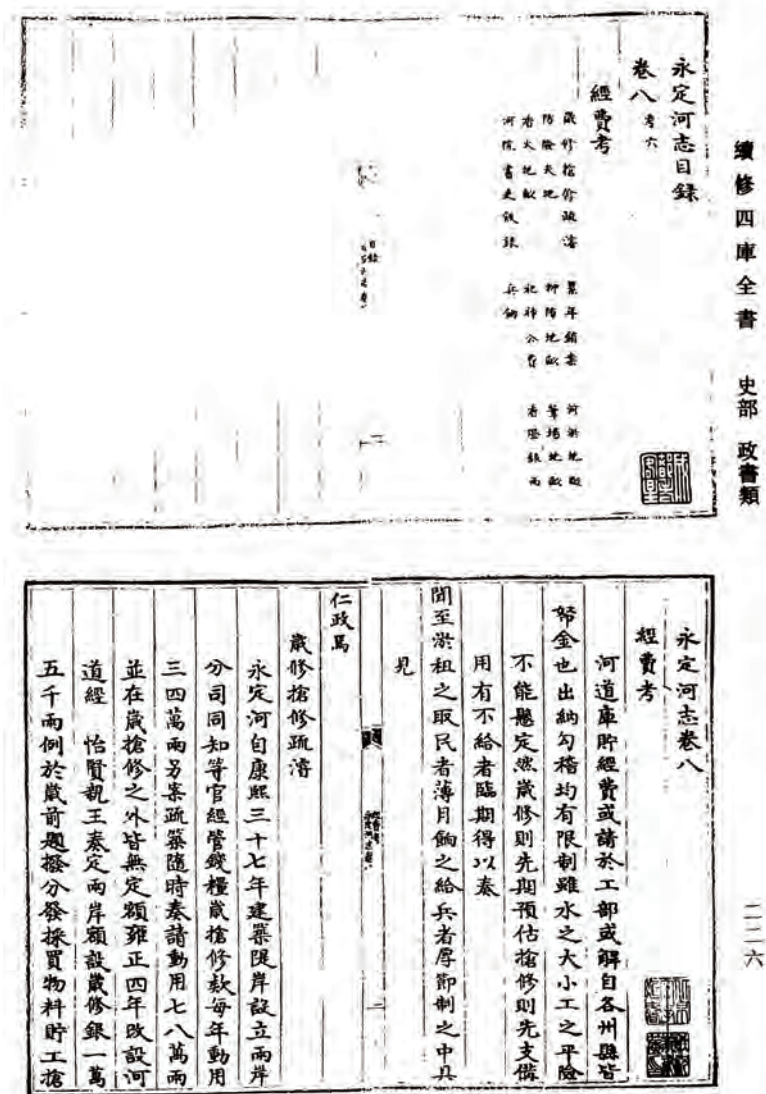 續修四庫全書 史部 政書類
二二六
永定河志目錄
卷八 考六
經費考
歲修搶修疏濬 累年銷案 河淤地畝
防險夫地 柳隙地畝 葦場地畝
香火地畝 祀神公費 香燈銀兩
河院書吏飯銀 兵餉
目錄
一
永定河志卷八
經費考
河道庫貯經費或請於工部或解自各州縣皆
帑金也出納勾稽均有限制雖水之大小工之平險
不能懸定然歲修則先期預估搶修則先支備
用有不給者臨期得以奏
聞至淤租之取民者薄月餉之給兵者厚節制之中具
見
一
仁政焉
歲修搶修疏濬
永定河自康熙三十七年建築隄岸設立兩岸
分司同知等官經管錢糧歲搶修款每年動用
三四萬兩另案疏築隨時奏請動用七八萬兩
並在歲搶修之外皆無定額雍正四年改設河
道經 怡賢親王奏定兩岸額設歲修銀一萬
五千兩例於歲前題撥分發採買物料貯工搶